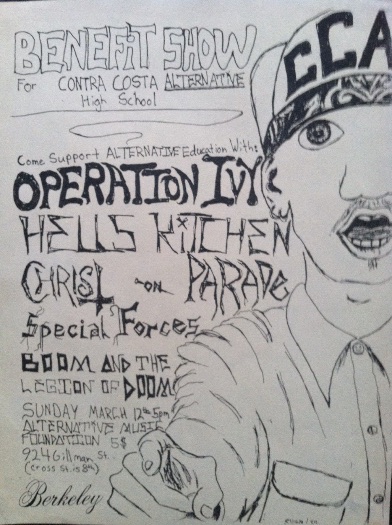 BENEFiT SHOW
For CONTRA COSTA ALTERNATIVE
High School
CCA
Come Support ALTERNATIVE Education With:
OPERATION IVY
HELLS KiTCHEN
CHRIST -on PARADE
Special Forces
BOOM AND THE
LEGION OF DOOM
SUNDAY MARCH 12th 5pm
ALTERNATIVE MUSIC
FOUNDATION 5$
924 Gillman St.
(cross St. is 8th)
Berkeley